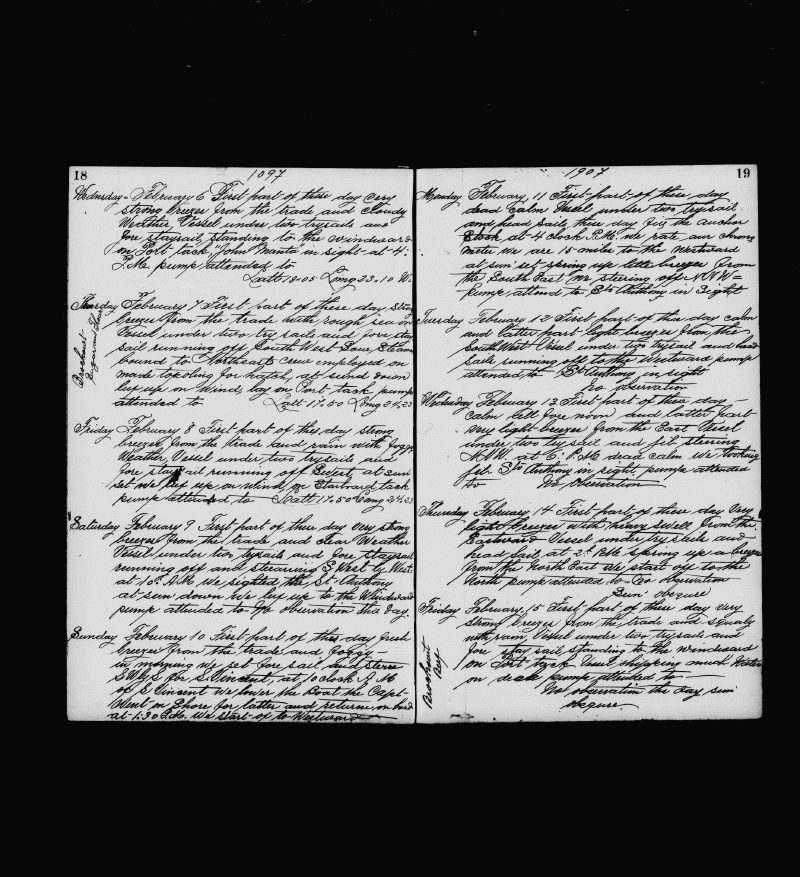 18
1097
Wednesday February 6 First part of these day very
strong breezes from the trade and cloudy
Weather Vessel under two trysails and
fore staysail, standing to the windward
on Port tack, "John Manta" in sight at 4
P.M. pump attended to
Latt 18-05 Long 23.10 W.
Thursday February 7 First part of these day strong
breezes from the trade with rough sea on
Vessel under two, try sail and fore stay
sail running off South West
bound to Northeast crew employed on
made for hatch, at sund down
luy up on Wind, on Port tack pump
attended to Latt 17.50 Long 24.23
Brockhurst
Friday February 8 First part of these day strong
breezes from the trade and rain with foggy
Weather, Vessel under two trysails and
fore staysail running off at sun
set we luy up on wind, on Starboard tack
pump attended to Latt 17.50 Long 24.23
Saturday February 9 First part of these day very strong
breezes from the trade and clear Weather
Vessel under two trysails and fore staysail
running off and stearring S West by West
at 10: A.M. we sighted the St Anthony
at sun down we luy up to the Windward
pump attended to No observation this day.
Sunday February 10 First part of this day fresh
breezes from the trade and foggy
in morning we set fore sail and steree
S.W.S for S Vincent, at 1 o clock P.M
of S Vincent we lower the Boat the Capt
Went on Shore for latter and return on bord
at 1:30 P.M. we start of to Westward
19
1907
Monday February, 11 First part of these day
dead calm Vessel under two trysail
and head sails, these day the anchor
at 4 clock P.M. we rate our chrono
meter we are 15 miles to the Westward
at sun set spring up little breezes from
the South East we steering off N N W
pump attend to St Anthony in Sight
Tuesday February 12 First part of the day calm
and latter part light breezes from the
South West Vessel under two trysail and head
sails running off to the Westward pump
attended to St Anthony in sight
No obsrvation
Wednesday February 13 First part of these day
calm till fore noon and latter part
very light breezes from the East Vessel
under two try sail and jib steering
N.N.W. at 6. P.M. dead calm we
jib. St Anthony in sight pump attended
to No observation
Thursday February 14 First part of these day Very
light breezes with heavy swell from the
Eastward Vessel under try sails and
head sail at 2: P.M. spring up a breeze
from the North East we start off to the
North pump attended to No obsrvation
Sun obsqure
Friday February, 15 First part of these day very
strong breezes from the trade and squaly
with rain, Vessel under two trysails and
fore stay sail standing to the windward
on Port tack Vesel shipping much Water
on deack pump attended to
Not observation the day sun
obsqure.
Brockhurst